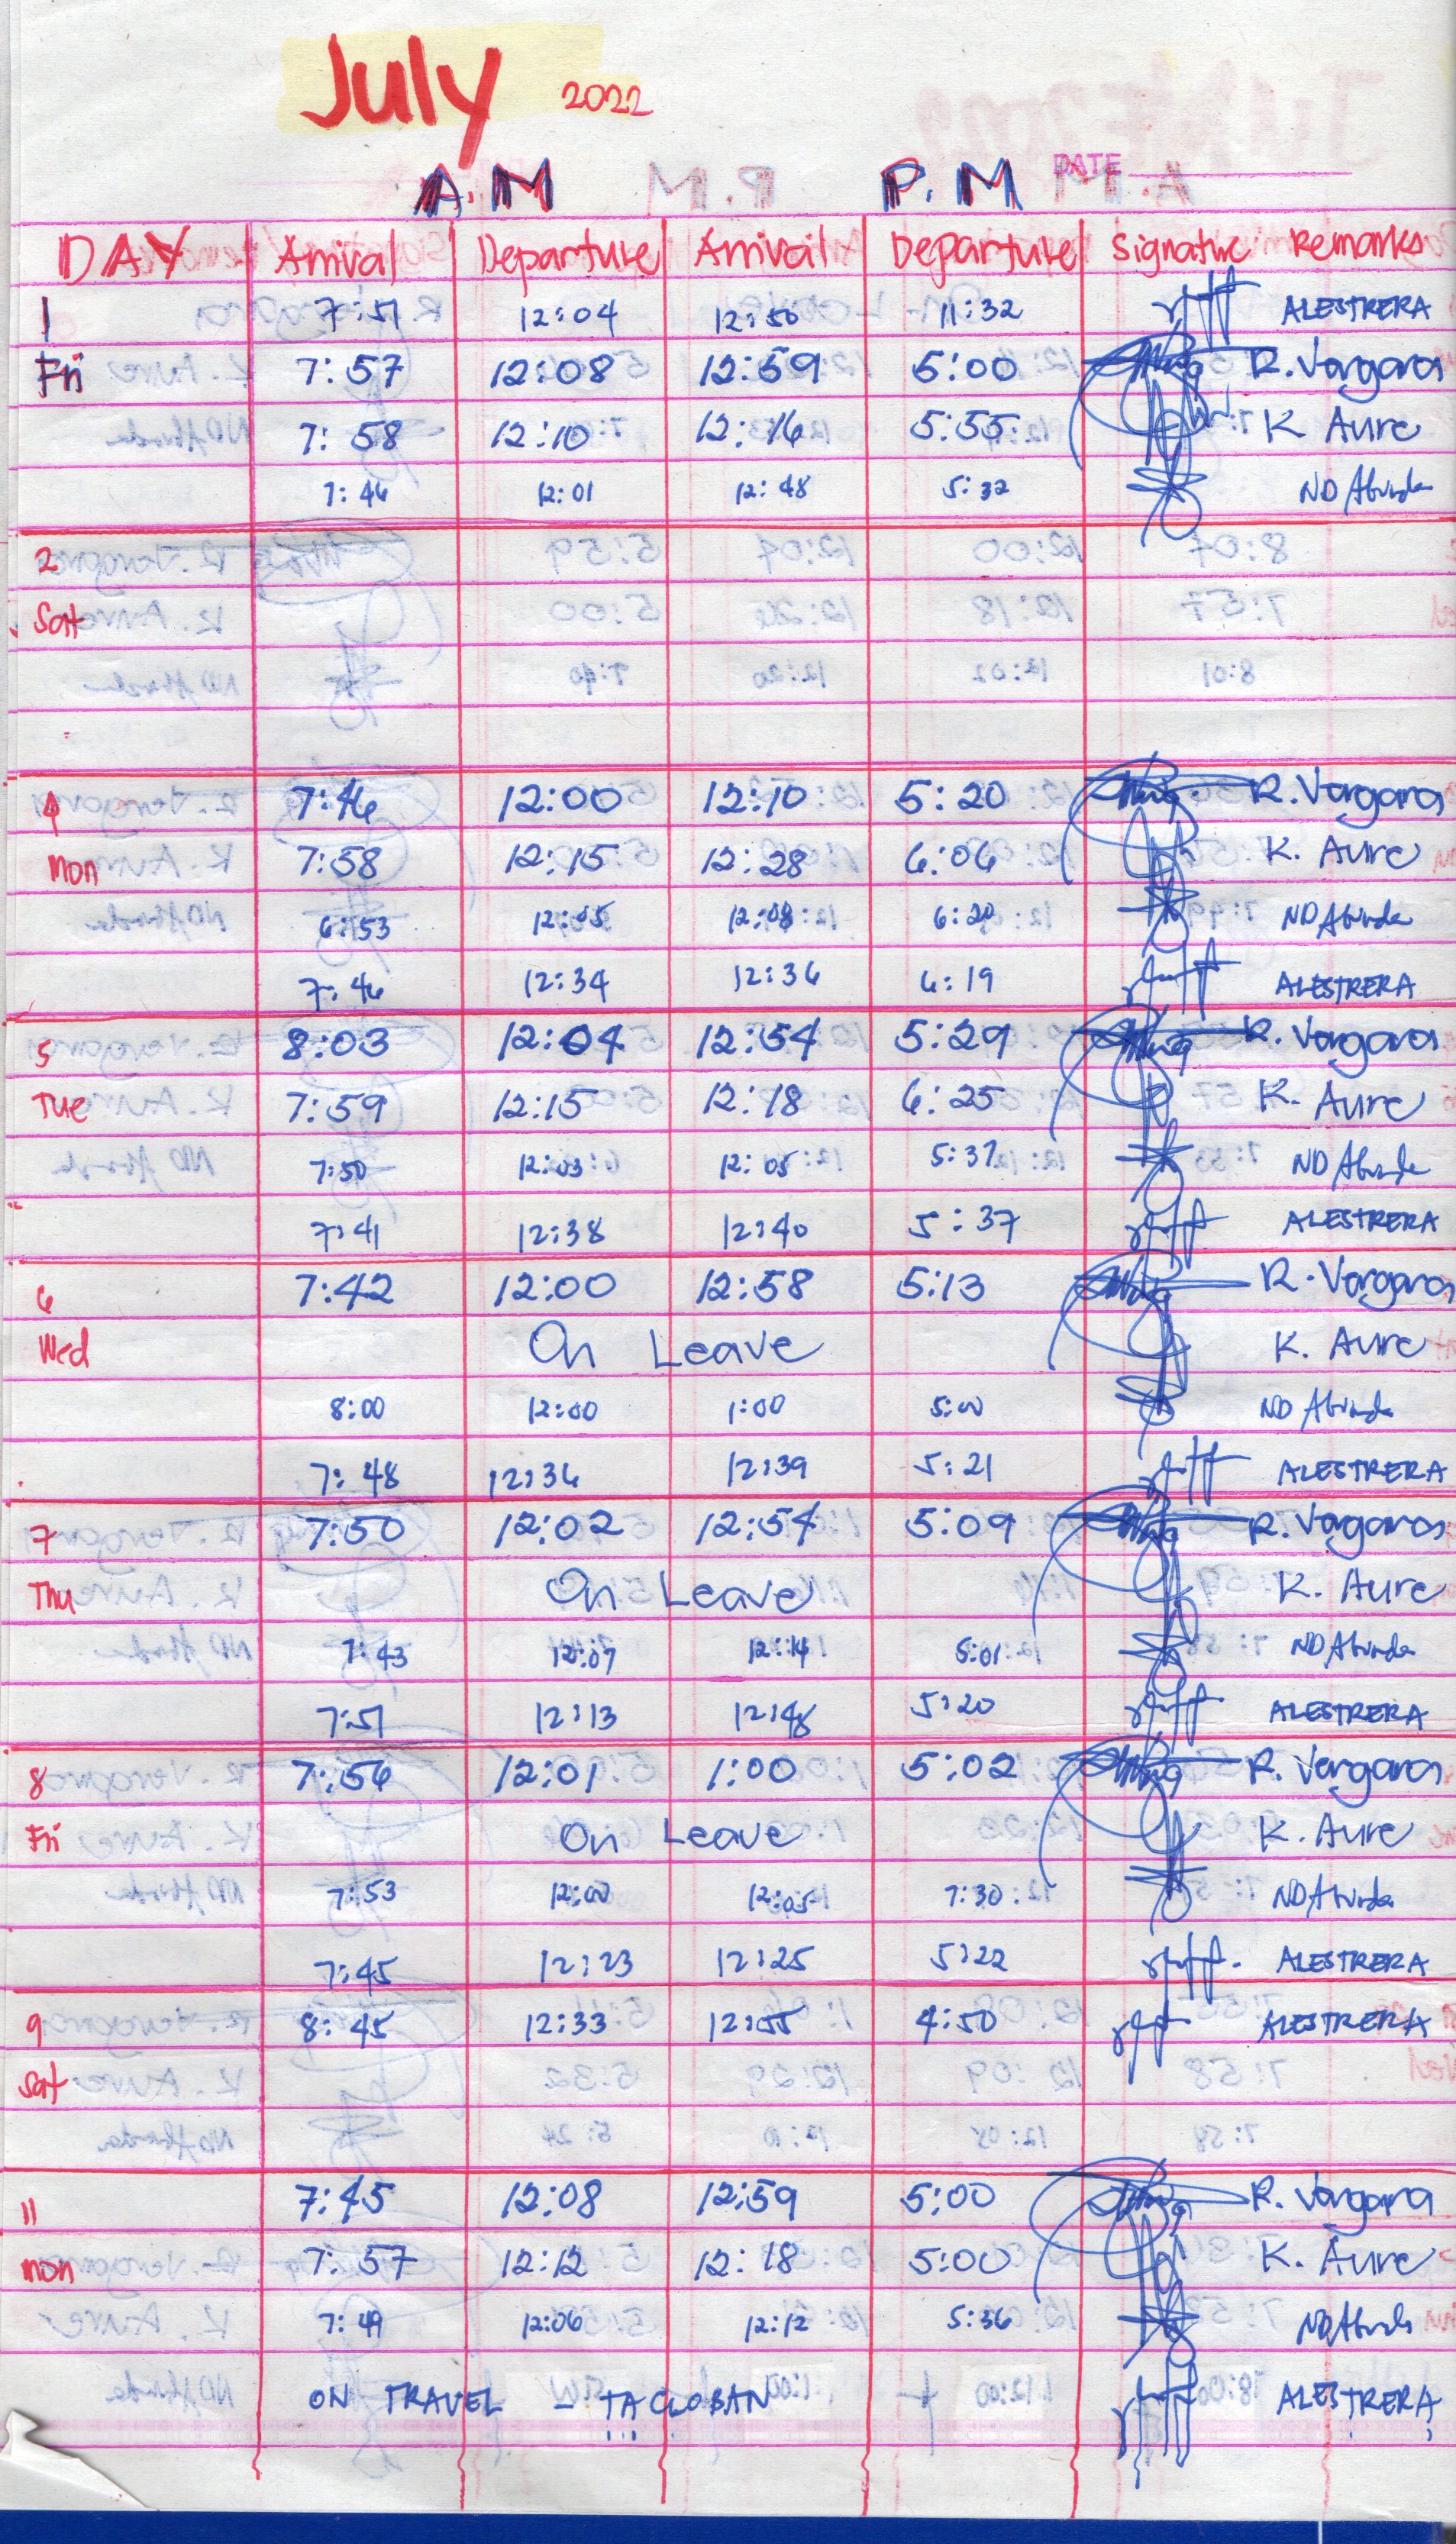 July 2022
DATE
A.M P.M
DAY Arrival Departure Arrival Departure Signature Remarks
1 7:51 12:04 12:50 11:32 ALESTRERA
Fri 7:57 12:08 12:59 5:00 R. Vergara
7:58 12:10 12:16 5:55 K Aure
7:46 12:01 12:48 5:32 ND Abunda
2
Sat
4 7:46 12:00 12:10 5:20 R. Vergara
Mon 7:58 12:15 12:28 6:06 K. Aure
6:53 12:05 12:08 6:20 ND Abunda
7:46 12:34 12:36 6:19 ALESTRERA
5 8:03 12:04 12:54 5:29 R. Vergara
Tue 7:59 12:15 12:18 6:25 K. Aure
7:50 12:03 12:05 5:37 ND Abunda
7:41 12:38 12:40 5:37 ALESTRERA
6 7:42 12:00 12:58 5:13 R. Vergara
Wed On Leave K. Aure
8:00 12:00 1:00 5:00 ND Abunda
7:48 12:36 12:39 5:21 ALESTRERA
7 7:50 12:02 12:54 5:09 R. Vergara
Thu On Leave K. Aure
7:43 12:07 12:14 5:01 ND Abunda
7:51 12:13 12:48 5:20 ALESTRERA
8 7:56 12:01 1:00 5:02 R. Vergara
Fri On Leave K. Aure
7:53 12:00 12:05 7:30 ND Abunda
7:45 12:23 12:25 5:22 ALESTRERA
9 8:45 12:33 12:55 4:50 ALESTRERA
Sat
11 7:45 12:08 12:59 5:00 R. Vergara
Mon 7:57 12:12 12:18 5:00 K. Aure
7:49 12:06 12:12 5:36 ND Abunda
ON TRAVEL - TACLOBAN ALESTRERA